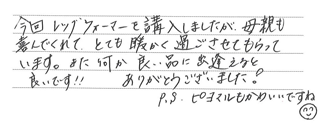 今回レッグウォーマーを購入しましたが、母親も
喜んでくれて、とても暖かく過ごさせてもらって
います。また何か良い品に出逢えると
良いです!! ありがとうございました!
P.S. ピヨマルもかわいいですね